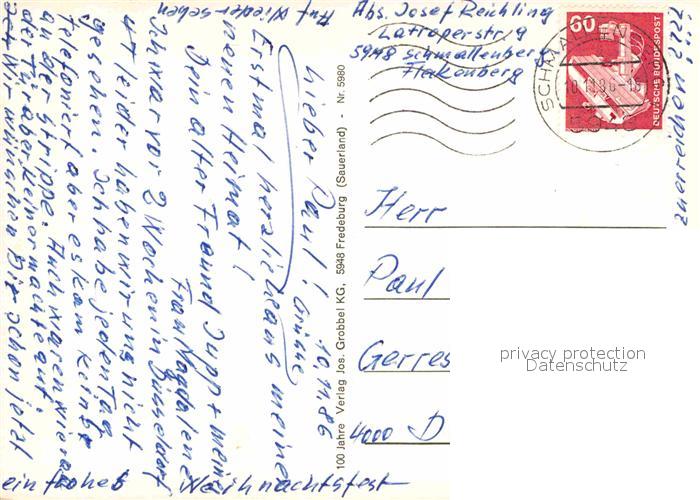 Abs. Josef Reichling
Latroperstr 9
5948 Schmallenberg
Fleckenberg
60
DEUTSCHE BUNDESPOST
SCHMALLEN
10.11.86-16
5948
Herr
Paul
Gerres
4000 D
privacy protection
Datenschutz
100 Jahre Verlag Jos. Grobbel KG, 5948 Fredeburg (Sauerland) - Nr. 5980
10.11.86
Lieber Paul! Grüße
Erstmal herzliche aus meiner
neuen Heimat!
Dein alter Freund Jupp + meine
Frau Magdalene
Ich war vor 2 Wochen in Düsseldorf
leider haben wir uns nicht
gesehen. Ich habe jeden Tag
Telefoniert aber es kam keiner
an der Strippe. Auch waren wir an
der Tür aber keiner machte auf.
Wir wünschen Dir schon jetzt
ein frohes Weihnachtsfest
Auf Wiedersehen
zu erreichen